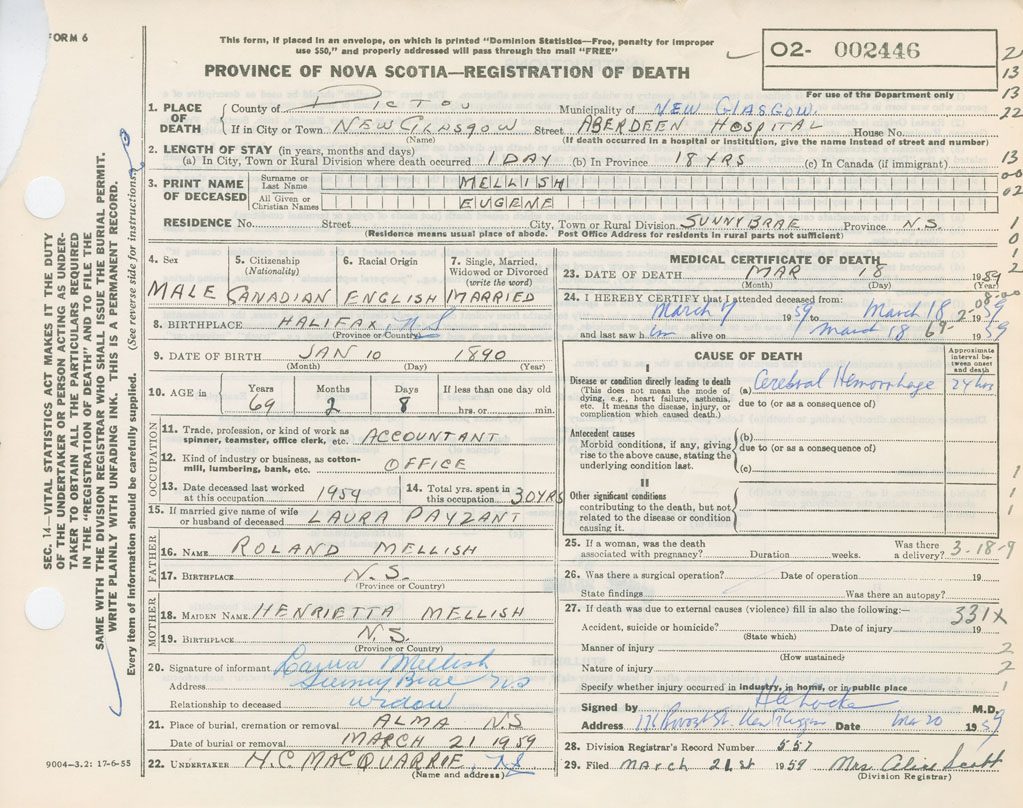 FORM 6
This form, if placed in an envelope, on which is printed "Dominion Statistics—Free, penalty for improper
use $50," and properly addressed will pass through the mail "FREE"
O2- 002446
For use of the Department only
PROVINCE OF NOVA SCOTIA—REGISTRATION OF DEATH
1. PLACE OF DEATH County of PICTOU Municipality of NEW GLASGOW.
If in City or Town NEW GLASGOW Street ABERDEEN HOSPITAL House No.
(Name) (If death occurred in a hospital or institution, give the name instead of street and number)
2. LENGTH OF STAY (in years, months and days)
(a) In City, Town or Rural Division where death occurred 1 DAY (b) In Province 18 YRS (c) In Canada (if immigrant)
3. PRINT NAME OF DECEASED Surname or Last Name MELLISH
All Given or Christian Names EUGENE
RESIDENCE No. Street City, Town or Rural Division SUNNY BRAE Province N.S.
(Residence means usual place of abode. Post Office Address for residents in rural parts not sufficient)
4. Sex 5. Citizenship (Nationality) 6. Racial Origin 7. Single, Married, Widowed or Divorced (write the word)
MALE CANADIAN ENGLISH MARRIED
8. BIRTHPLACE HALIFAX N S
(Province or Country)
9. DATE OF BIRTH JAN 10 1890
(Month) (Day) (Year)
10. AGE in Years Months Days If less than one day old
69 2 8 hrs. or min.
OCCUPATION
11. Trade, profession, or kind of work as spinner, teamster, office clerk, etc. ACCOUNTANT
12. Kind of industry or business, as cotton-mill, lumbering, bank, etc. OFFICE
13. Date deceased last worked at this occupation 1959 14. Total yrs. spent in this occupation 30 YRS
15. If married give name of wife or husband of deceased LAURA PAYZANT
FATHER
16. NAME ROLAND MELLISH
17. BIRTHPLACE N.S.
(Province or Country)
MOTHER
18. MAIDEN NAME HENRIETTA MELLISH
19. BIRTHPLACE N.S.
(Province or Country)
20. Signature of informant Laura Mellish
Address Sunny Brae NS
Relationship to deceased widow
21. Place of burial, cremation or removal ALMA N.S
Date of burial or removal MARCH 21 1959
22. UNDERTAKER H.C. MACQUARRIE, NS
(Name and address)
MEDICAL CERTIFICATE OF DEATH
23. DATE OF DEATH MAR 18 1959
(Month) (Day) (Year)
24. I HEREBY CERTIFY that I attended deceased from:
March 7 1959 to March 18 1959
and last saw him alive on March 18 1959
CAUSE OF DEATH
Approximate interval between onset and death
I
Disease or condition directly leading to death (a) Cerebral Hemorrhage 24 hrs
(This does not mean the mode of dying, e.g., heart failure, asthenia, etc. It means the disease, injury, or complication which caused death.)
due to (or as a consequence of)
Antecedent causes (b)
Morbid conditions, if any, giving rise to the above cause, stating the underlying condition last.
due to (or as a consequence of)
(c)
II
Other significant conditions
contributing to the death, but not related to the disease or condition causing it.
25. If a woman, was the death associated with pregnancy? Duration weeks. Was there a delivery? 3-18-9
26. Was there a surgical operation? Date of operation 19
State findings Was there an autopsy?
27. If death was due to external causes (violence) fill in also the following:—
331X
Accident, suicide or homicide? Date of injury 19
(State which)
Manner of injury
(How sustained)
Nature of injury
Specify whether injury occurred in industry, in home, or in public place
Signed by M.D.
Address New Glasgow Date Mar 20 1959
28. Division Registrar's Record Number 557
29. Filed March 21st 1959 Mrs Alice Scott
(Division Registrar)
SEC. 14—VITAL STATISTICS ACT MAKES IT THE DUTY
OF THE UNDERTAKER OR PERSON ACTING AS UNDER-
TAKER TO OBTAIN ALL THE PARTICULARS REQUIRED
IN THE "REGISTRATION OF DEATH" AND TO FILE THE
SAME WITH THE DIVISION REGISTRAR WHO SHALL ISSUE THE BURIAL PERMIT.
WRITE PLAINLY WITH UNFADING INK. THIS IS A PERMANENT RECORD.
Every item of information should be carefully supplied. (See reverse side for instructions.)
9004—3.2: 17-6-55
13
13
22
13
00
02
1
0
1
2
1
1
1
2
2
1